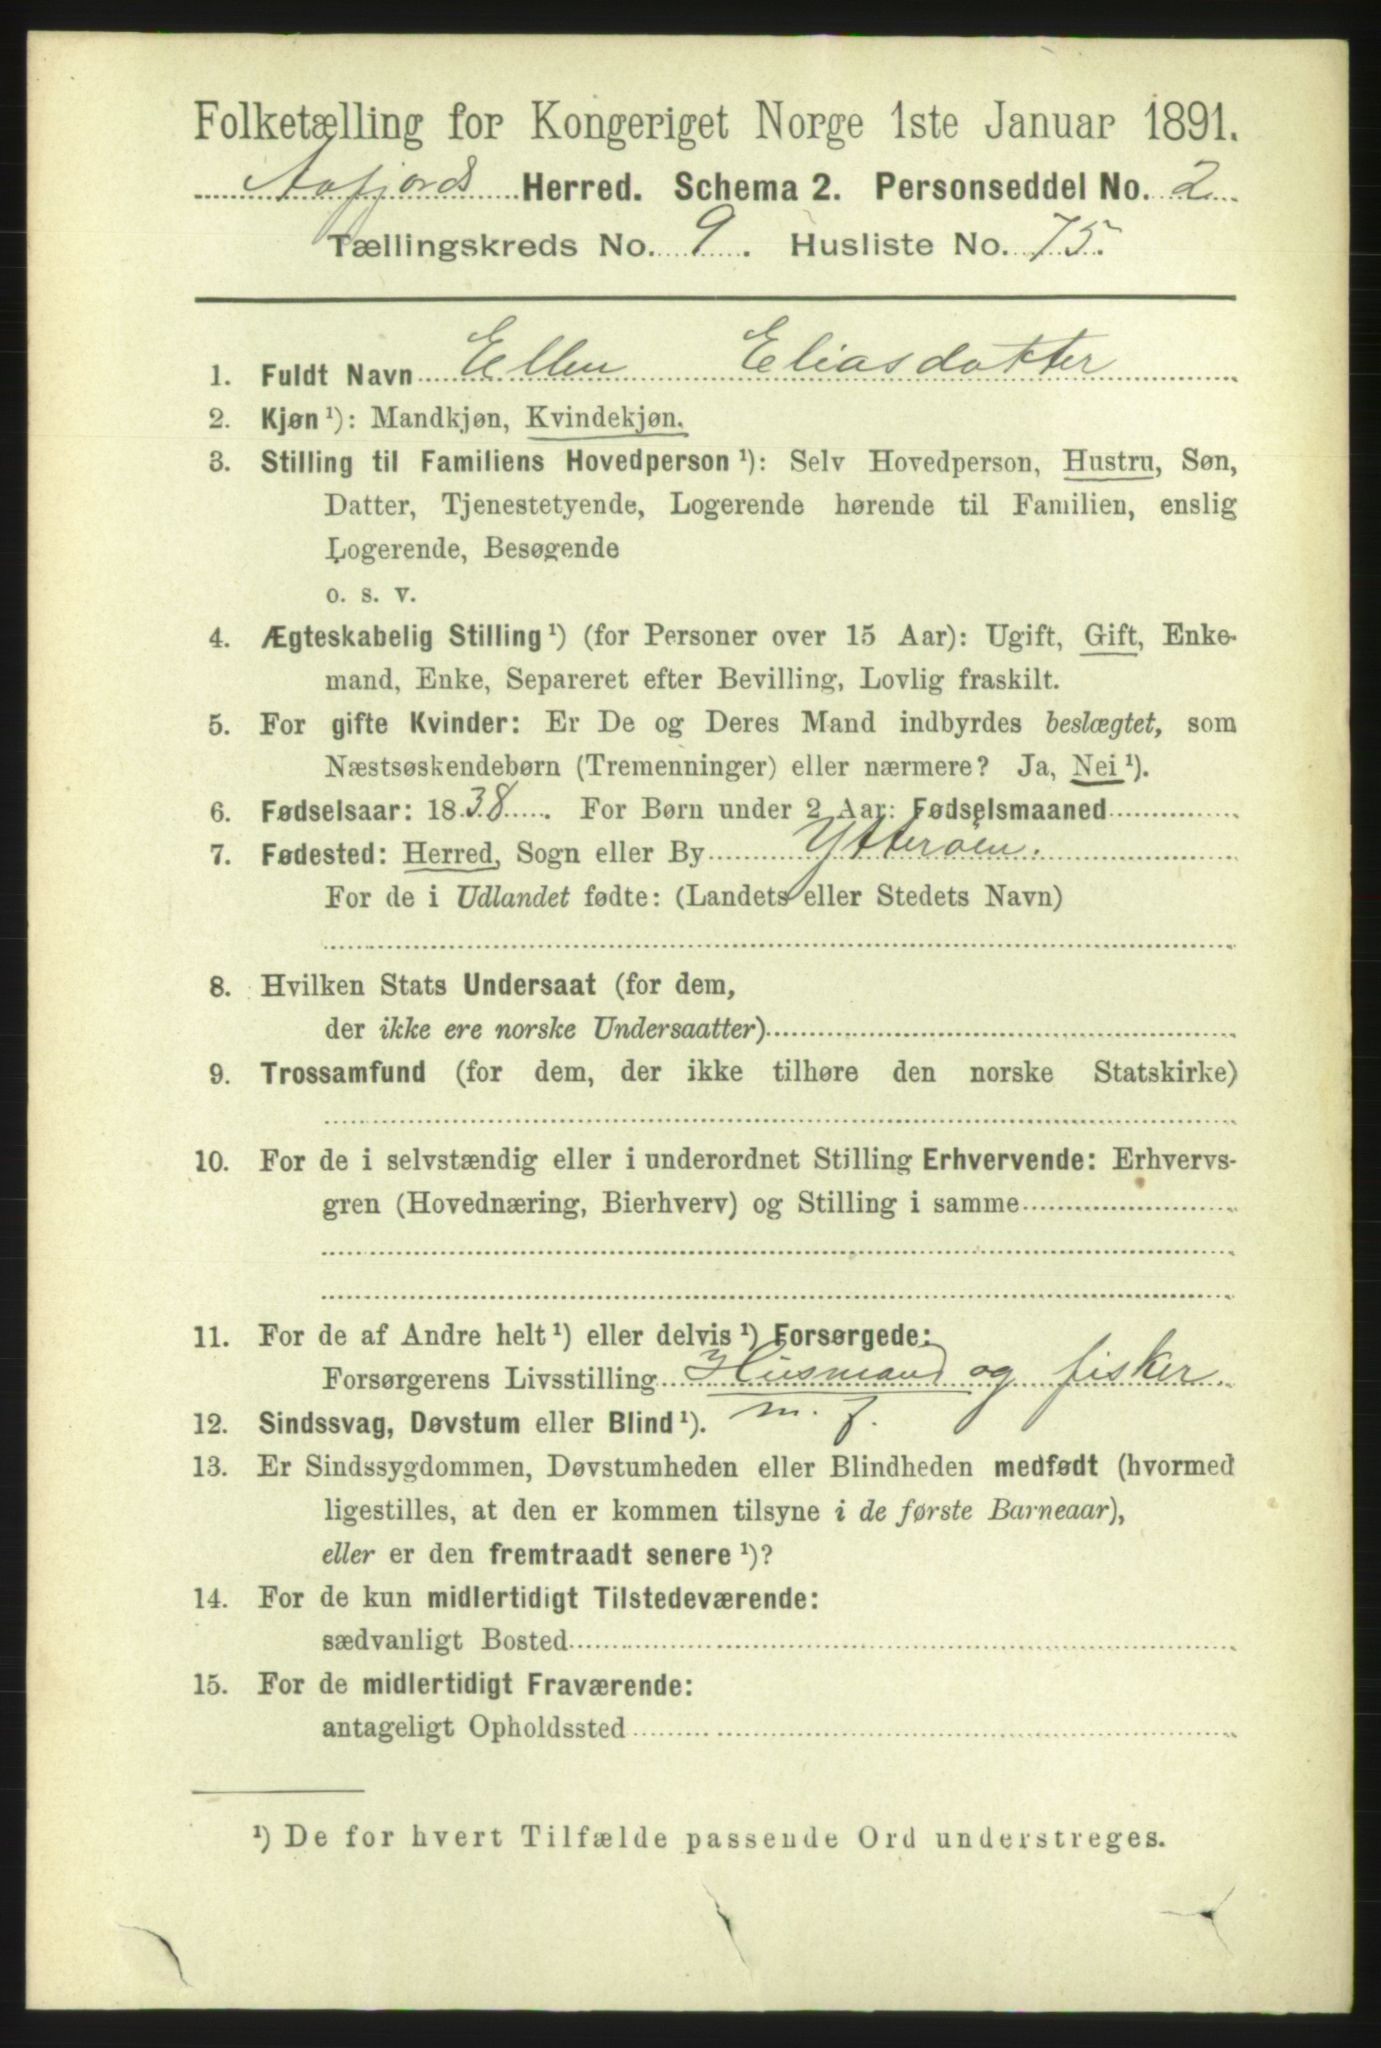 Folketælling for Kongeriget Norge 1ste Januar 1891.
Aafjords Herred. Schema 2. Personseddel No. 2
Tællingskreds No. 9. Husliste No. 75.
1. Fuldt Navn Ellen Eliasdatter
2. Kjøn¹): Mandkjøn, Kvindekjøn.
3. Stilling til Familiens Hovedperson¹): Selv Hovedperson, Hustru, Søn,
Datter, Tjenestetyende, Logerende hørende til Familien, enslig
Logerende, Besøgende
o. s. v.
4. Ægteskabelig Stilling¹) (for Personer over 15 Aar): Ugift, Gift, Enke-
mand, Enke, Separeret efter Bevilling, Lovlig fraskilt.
5. For gifte Kvinder: Er De og Deres Mand indbyrdes beslægtet, som
Næstsøskendebørn (Tremenninger) eller nærmere? Ja, Nei¹).
6. Fødselsaar: 1838. For Børn under 2 Aar: Fødselsmaaned
7. Fødested: Herred, Sogn eller By Ytterøen.
For de i Udlandet fødte: (Landets eller Stedets Navn)
8. Hvilken Stats Undersaat (for dem,
der ikke ere norske Undersaatter)
9. Trossamfund (for dem, der ikke tilhøre den norske Statskirke)
10. For de i selvstændig eller i underordnet Stilling Erhvervende: Erhvervs-
gren (Hovednæring, Bierhverv) og Stilling i samme
11. For de af Andre helt¹) eller delvis¹) Forsørgede:
Forsørgerens Livsstilling Husmand og fisker.
m. f.
12. Sindssvag, Døvstum eller Blind¹).
13. Er Sindssygdommen, Døvstumheden eller Blindheden medfødt (hvormed
ligestilles, at den er kommen tilsyne i de første Barneaar),
eller er den fremtraadt senere¹)?
14. For de kun midlertidigt Tilstedeværende:
sædvanligt Bosted
15. For de midlertidigt Fraværende:
antageligt Opholdssted
¹) De for hvert Tilfælde passende Ord understreges.